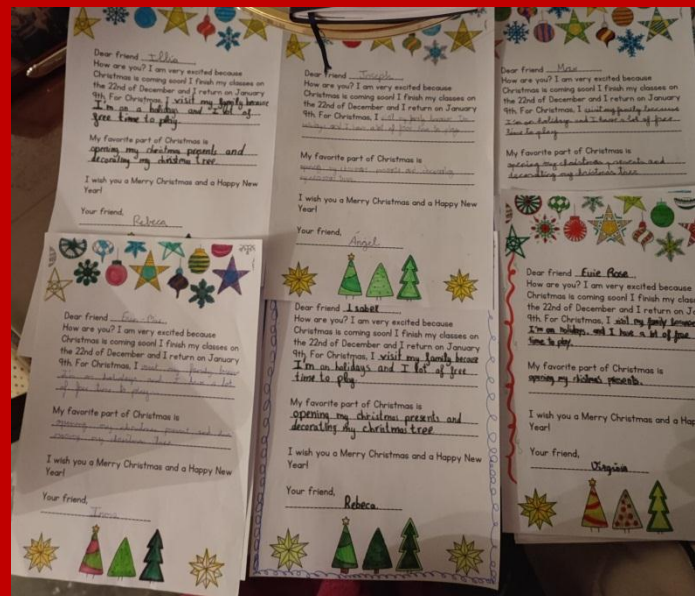 Dear friend Illia
How are you? I am very excited because
Christmas is coming soon! I finish my classes on
the 22nd of December and I return on January
9th. For Christmas, I visit my family because
I'm on a holidays and I lot of
free time to play
My favorite part of Christmas is
opening my christmas presents and
decorating my christmas tree
I wish you a Merry Christmas and a Happy New
Year!
Your friend,
Rebeca
Dear friend Joseph
How are you? I am very excited because
Christmas is coming soon! I finish my classes on
the 22nd of December and I return on January
9th. For Christmas, I visit my family because I'm
holidays and I have a lot of free time to play
My favorite part of Christmas is
opening my christmas presents and decorating
I wish you a Merry Christmas and a Happy New
Year!
Your friend,
Ángel
Dear friend Max
How are you? I am very excited because
Christmas is coming soon! I finish my classes on
the 22nd of December and I return on January
9th. For Christmas, I visit my family because
I'm on holidays and I have a lot of free
time to play
My favorite part of Christmas is
opening my christmas presents and
decorating my christmas tree
I wish you a Merry Christmas and a Happy New
Year!
Dear friend
How are you? I am very excited because
Christmas is coming soon! I finish my classes on
the 22nd of December and I return on January
9th. For Christmas, I visit my family
holidays and I have a lot
of free time to play
My favorite part of Christmas is
opening my christmas present and
my christmas tree
I wish you a Merry Christmas and a Happy New
Year!
Your friend,
Dear friend Isabel
How are you? I am very excited because
Christmas is coming soon! I finish my classes on
the 22nd of December and I return on January
9th. For Christmas, I visit my family because
I'm on holidays and I lot of free
time to play
My favorite part of Christmas is
opening my christmas presents and
decorating my christmas tree
I wish you a Merry Christmas and a Happy New
Year!
Your friend,
Rebeca
Dear friend Evie Rose
How are you? I am very excited because
Christmas is coming soon! I finish my clas
the 22nd of December and I return on Ja
9th. For Christmas, I visit my family because
I'm on holidays, and I have a lot of free
time to play.
My favorite part of Christmas is
opening my christmas presents.
I wish you a Merry Christmas and a Hap
Year!
Your friend,
Virginia